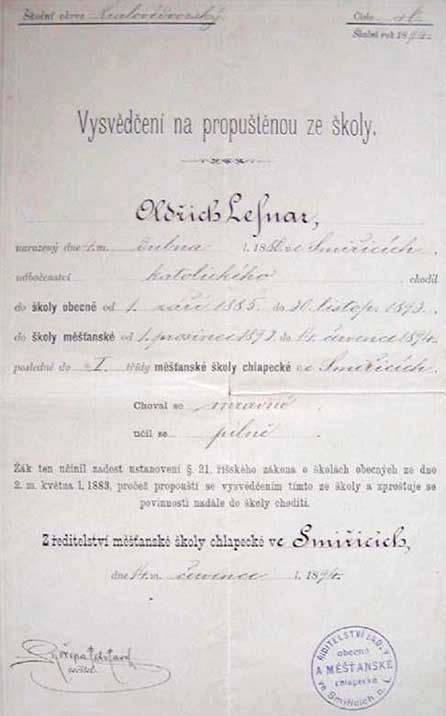 Školní okres Královédvorský
Číslo
Školní rok 1894.
Vysvědčení na propuštěnou ze školy.
Oldřich Lešnar,
narozený dne m. dubna l. 18 ve Smiřicích,
náboženství katolického chodil
do školy obecné od 1. září 1885. do 30. listop. 1893.
do školy měšťanské od 1. prosince 1893. do 14. července 1894.
posledně do I. třídy měšťanské školy chlapecké ve Smiřicích.
Choval se mravně
učil se pilně.
Žák ten učinil zadost ustanovení §. 21. říšského zákona o školách obecných ze dne
2. m. května l. 1883, pročež propouští se vysvědčením tímto ze školy a zprošťuje se
povinnosti nadále do školy choditi.
Z ředitelství měšťanské školy chlapecké ve Smiřicích,
dne 14. m. července l. 1894.
ředitel.
ŘEDITELSTVÍ ŠKOLY
obecné
A MĚŠŤANSKÉ
chlapecké
ve Smiřicích n. L.